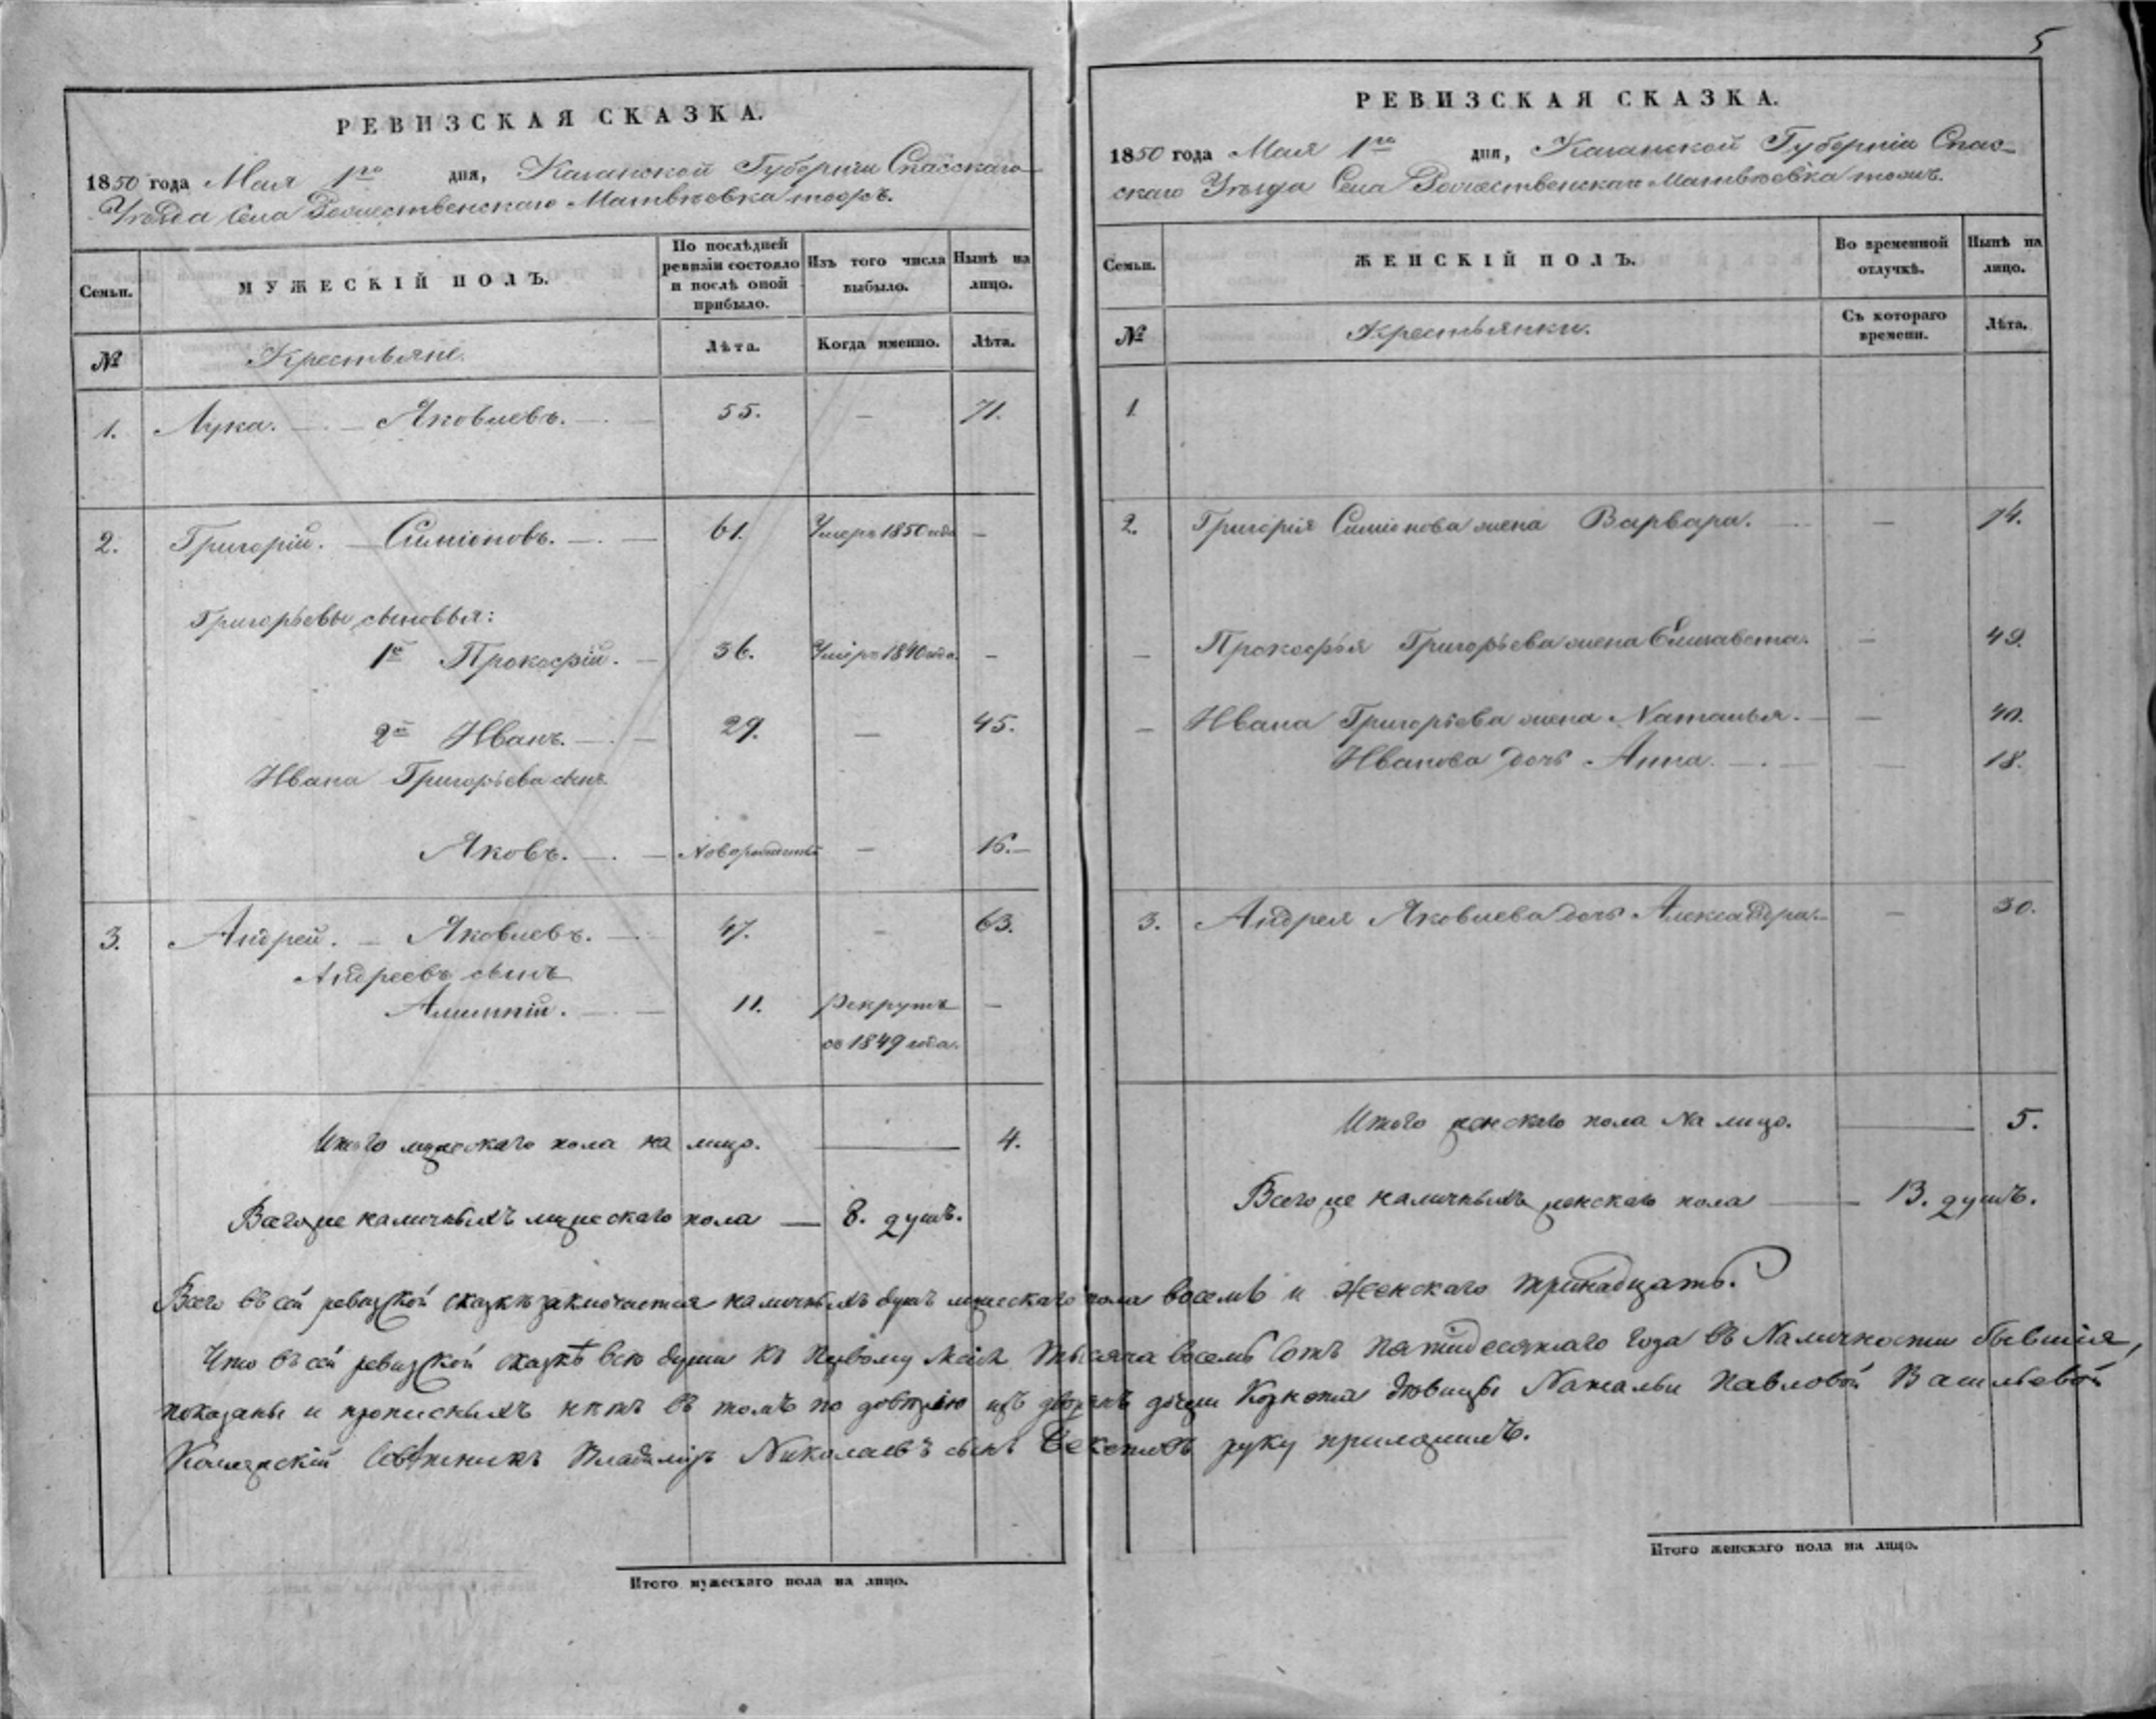 5
РЕВИЗСКАЯ СКАЗКА.
1850 года Мая 1го дня, Казанской Губерніи Спасскаго
Уѣзда Села Рождественскаго Матвѣевка тожъ.
Семьи.
МУЖЕСКІЙ ПОЛЪ.
По послѣдней ревизіи состояло и послѣ оной прибыло.
Изъ того числа выбыло.
Нынѣ на лицо.
№
Крестьяне.
Лѣта.
Когда именно.
Лѣта.
1. Лука. Яковлевъ. 55. — 71.
2. Григорій. Симіоновъ. 61. Умеръ 1850 года —
Григорьевы сыновья:
1й Прокофій. 36. Умеръ 1840 года. —
2й Иванъ. 29. — 45.
Ивана Григорьева сынъ
Яковъ. Новорожденный — 16.
3. Андрей. Яковлевъ. 47. — 63.
Андреевъ сынъ
Алимпій. 11. Рекрутъ —
съ 1849 года.
Итого мужескаго пола на лицо. 4.
Всего же наличныхъ мужескаго пола — 8. душъ.
Итого мужескаго пола на лицо.
РЕВИЗСКАЯ СКАЗКА.
1850 года Мая 1го дня, Казанской Губерніи Спас-
скаго Уѣзда Села Рождественскаго Матвѣевка тожъ.
Семьи.
ЖЕНСКІЙ ПОЛЪ.
Во временной отлучкѣ.
Нынѣ на лицо.
№
Крестьянки.
Съ котораго времени.
Лѣта.
1
2. Григорія Симіонова жена Варвара. — 74.
— Прокофья Григорьева жена Елизавета. — 49.
— Ивана Григорьева жена Наталья. — 40.
Иванова дочь Анна. — 18.
3. Андрея Яковлева дочь Александра. — 30.
Итого женскаго пола на лицо. 5.
Всего же наличныхъ женскаго пола — 13. душъ.
Всего въ сей ревизской сказкѣ заключается наличныхъ душъ мужескаго пола восемь и женскаго тринадцать.
Что въ сей ревизской сказкѣ всѣ души къ первому Маія тысяча восемь сотъ пятидесятаго года въ наличности бывшія,
показаны и прописныхъ нѣтъ въ томъ по довѣрію изъ дворянъ дѣвицы Натальи Павловой Васильевой
Коллежскій Совѣтникъ Владиміръ Николаевъ сынъ Бекетовъ руку приложилъ.
Итого женскаго пола на лицо.